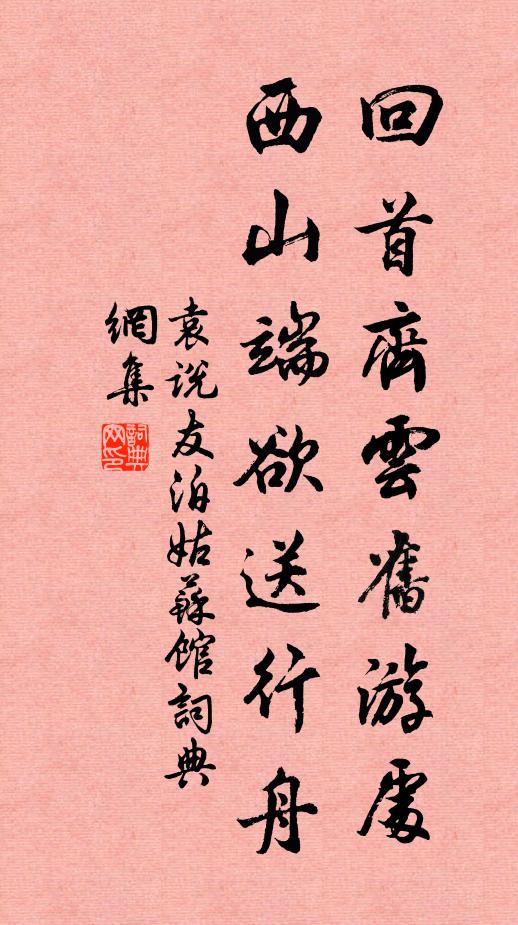 回首齊雲舊游處
西山端欲送行舟
袁説友泊姑蘇館詞典
網集
詞典
网印